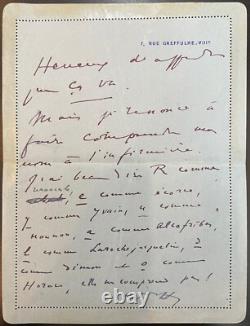 7, RUE GREFFULHE, VIIIᵉ
Heureux d'apprendre
que ça va.
Mais je renonce à
faire comprendre mon
nom à l'infirmière.
J'ai beau dire R comme
e comme
y comme Yvain, comme
nounou, a comme
l comme Larochejaquelein, d
comme et o comme
Horace, elle ne comprend pas!